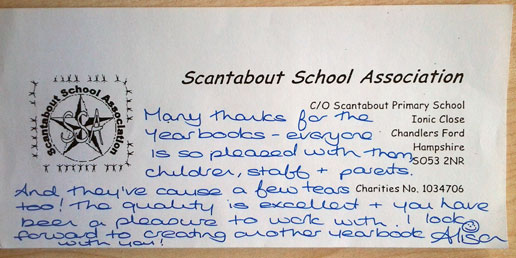 Scantabout School Association
SSA
Scantabout School Association
C/O Scantabout Primary School
Ionic Close
Chandlers Ford
Hampshire
SO53 2NR
Charities No. 1034706
Many thanks for the
Yearbooks - everyone
is so pleased with them
children, staff + parents.
And they've cause a few tears
too! The quality is excellent + you have
been a pleasure to work with. I look
forward to creating another yearbook
with you!
Alison